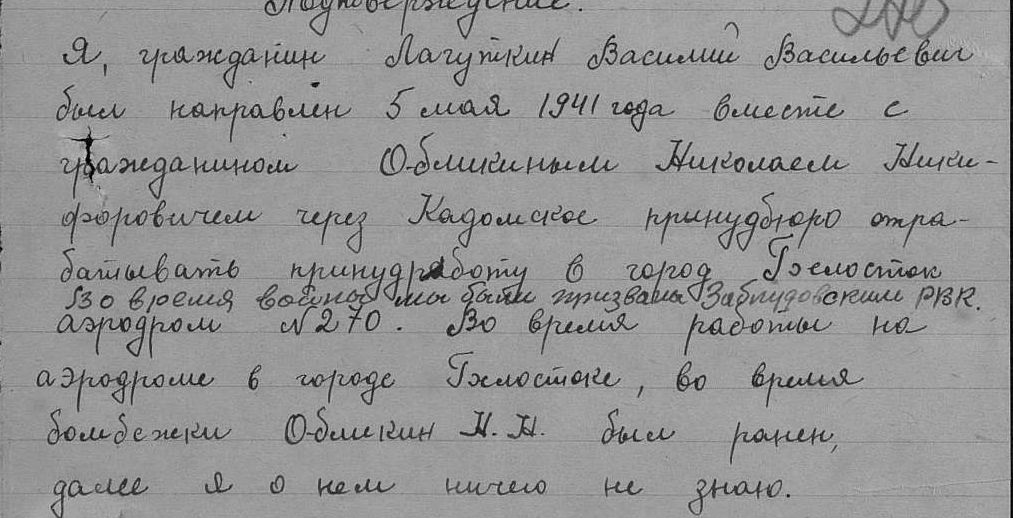 Подтверждение.
Я, гражданин Лагуткин Василий Васильевич
был направлен 5 мая 1941 года вместе с
гражданином Обликиным Николаем Ники-
форовичем через Кадомское принудбюро отра-
батывать принудработу в город Белосток
Во время войны мы были призваны Заблудовским РВК.
аэродром №270. Во время работы на
аэродроме в городе Белостоке, во время
бомбежки Обликин Н.Н. был ранен,
далее я о нем ничего не знаю.